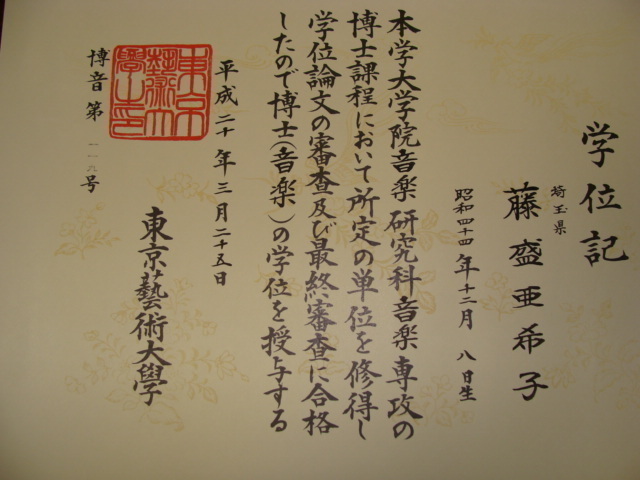 学位記
埼玉県
藤盛亜希子
昭和四十四年十二月八日生
本学大学院音楽研究科音楽専攻の
博士課程において所定の単位を修得し
学位論文の審査及び最終審査に合格
したので博士(音楽)の学位を授与する
平成二十年三月二十五日
東京藝術大學
博音第号